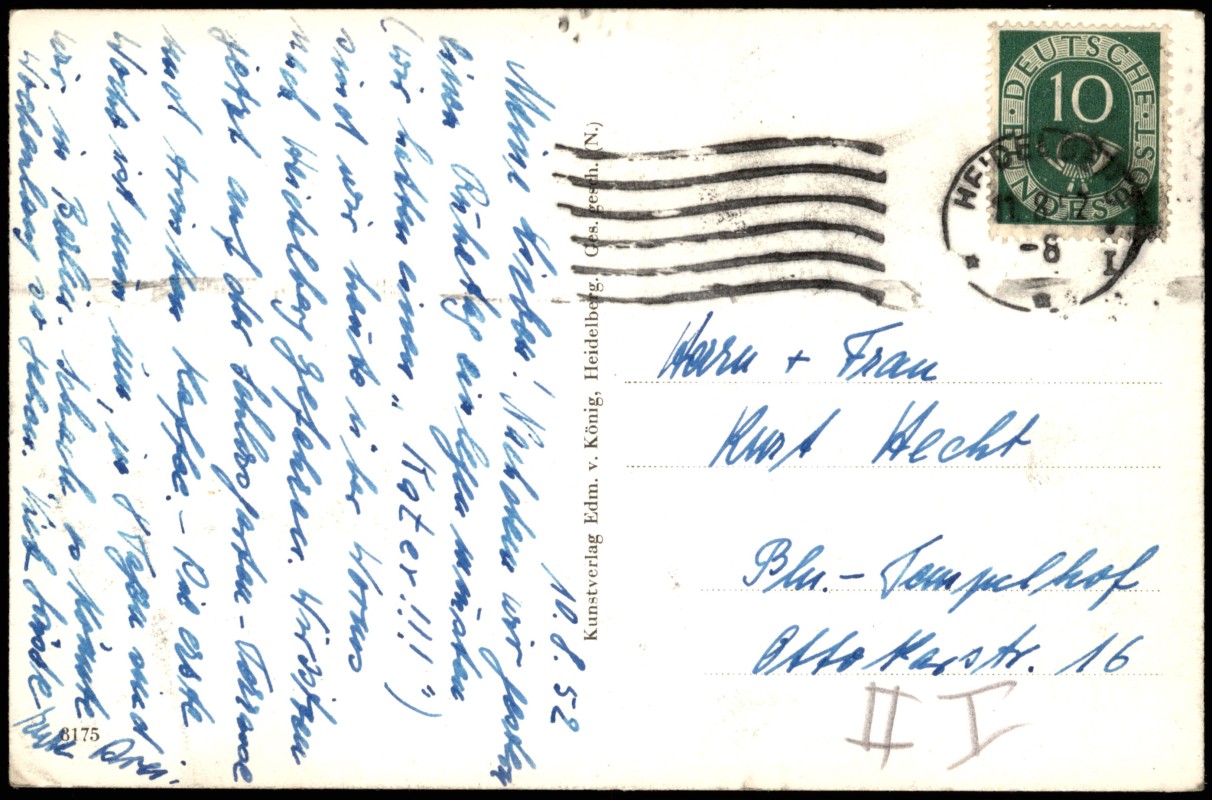 10.8.52
Meine Lieben! Nachdem wir gestern
einen Ruhetag einlegen mussten
(wir hatten einen "Kater!!!")
sind wir heute über Worms
nach Heidelberg gefahren. Wir sitzen
jetzt auf der Schlossgarten-Terrasse
und trinken Kaffee. – Die erste
Woche ist nun hin, in 8 Tagen sind
wir in Berlin. Schade, so könnte
wochenlang so gehen. Viele Grüße
Drei.
8175
Kunstverlag Edm. v. König, Heidelberg. Ges. gesch. (N.)
DEUTSCHE BUNDESPOST
10
HEIDELBERG
-8
I
Herrn + Frau
Kurt Hecht
Bln.-Tempelhof
Ottokarstr. 16
II I